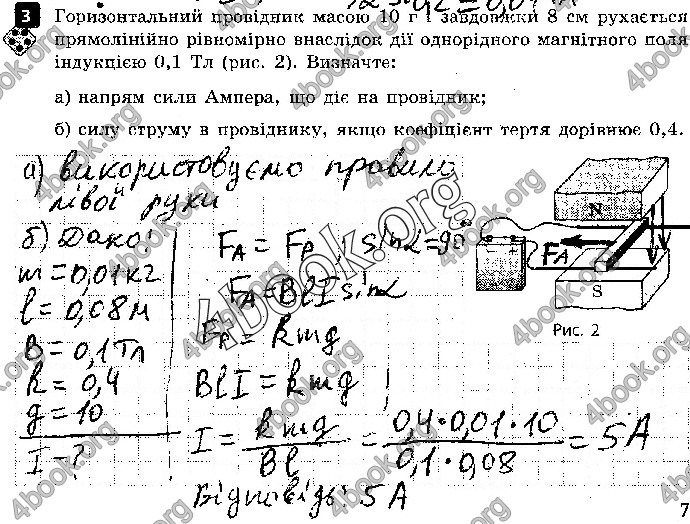 3 Горизонтальний провідник масою 10 г і завдовжки 8 см рухається
прямолінійно рівномірно внаслідок дії однорідного магнітного поля
індукцією 0,1 Тл (рис. 2). Визначте:
а) напрям сили Ампера, що діє на провідник;
б) силу струму в провіднику, якщо коефіцієнт тертя дорівнює 0,4.
а) використовуємо правило
лівої руки
б) Дано:
m = 0,01 кг
l = 0,08 м
B = 0,1 Тл
k = 0,4
g = 10
I - ?
F_A = F_P, sin α = 90
F_A = B l I sin α
F_P = k m g
B l I = k m g
I = kmg / Bl = 0,4 · 0,01 · 10 / 0,1 · 0,08 = 5 A
Відповідь: 5 A
N
F_A
S
Рис. 2
7
4book.org